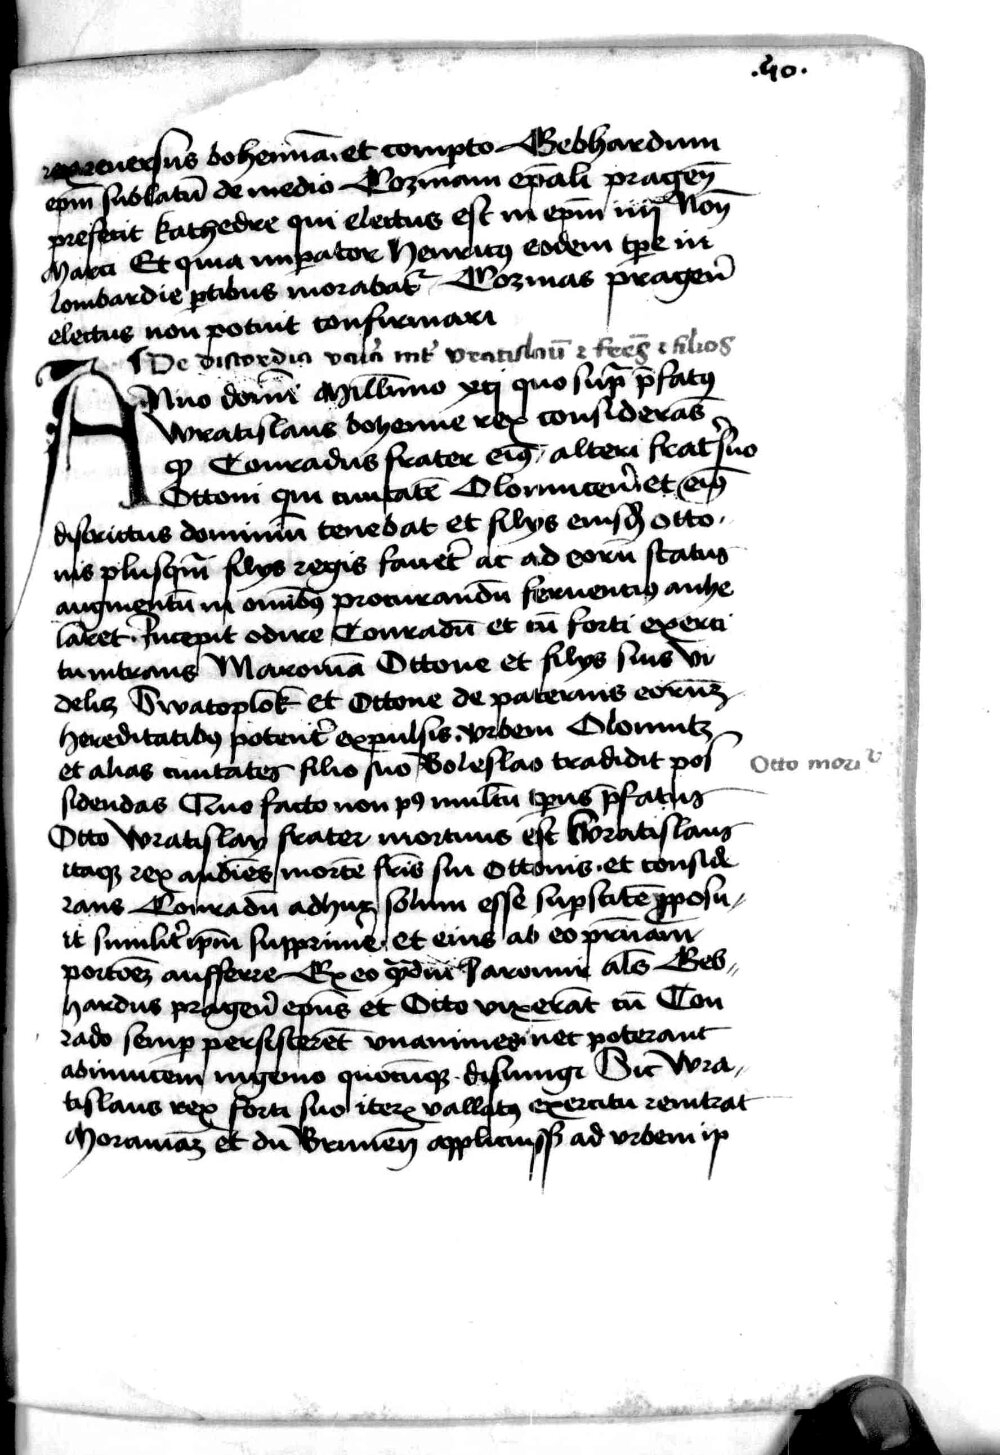 .40.
rex reuersus bohemiā. et compto Gebhardum
epm̄ sublatū de medio Cozmam epāli pragen̄
prefecit kathedre qui electus est in epm̄ iiij Non̄
Marci Et quia imperator Henricus eodem tp̄e in
lombardie ptibus morabat᷑ Cozmas pragen̄
electus non potuit confirmari
De discordia int᷑ vratislaū ⁊ frēs ⁊ filios
Anno domī Millimo xcj quo supra p̄fatꝰ
Wratislaus bohemie rex considerās
ꝙ Conradus frater eiꝰ alteri frat᷑ suo
Ottoni qui ciuitatē Olomucen̄ et eiꝰ
districtus dominiū tenebat et filijs eiusd̄ Otto-
nis plusqm̄ filijs regis fauet᷑ ac ad eorū status
augmentū in omībꝰ procurandū feruentiꝰ anhe
laret. Incepit odire Conradū et cū forti exerci
tu intrans Marouiā Ottone et filijs suis vi
delicꝫ Swatoplok et Ottone de paternis eorum
hereditatibꝰ potent᷑ expulsis. vrbem Olomutz
et alias ciuitates filio suo Boleslao tradidit pos
Otto mori᷑
sidendas Quo facto non pꝰ multū tp̄us p̄fatus
Otto Wratislay frater mortuus est Wratislaus
itaqꝫ rex audiēs mortē fr̄is sui Ottonis. et conside
rans Conradū adhuc solum esse supstitē ꝓposu-
it similit᷑ ipm̄ supprimē. et eius ab eo prouīam
portōeꝫ aufferre Ex eo qđ dū Jaromir als̄ Geb-
hardus pragen̄ epūs et Otto vixerāt cū Con
rado semp persisterēt vnanimes nec poterant
abinuicem ingenio quocūqꝫ disiungi Sic Wra-
tislaus rex forti suo iterꝫ vallatꝰ exercitu reintrat
Morauiaꝫ et dū Brunen̄ applicuisset ad vrbem ip